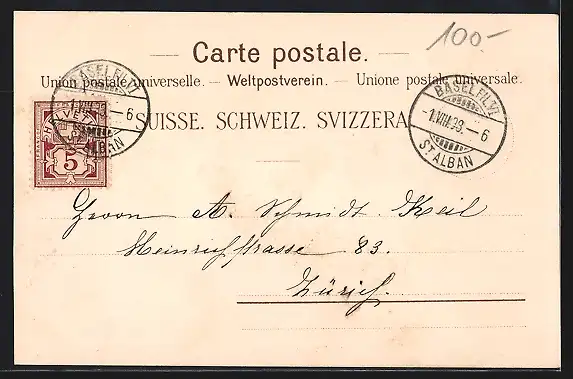 100-
Carte postale.
Union postale universelle. — Weltpostverein. — Unione postale universale.
SUISSE. SCHWEIZ. SVIZZERA
HELVETIA
5
BASEL FIL. VI
-1.VIII.99.-6
ST. ALBAN
BASEL FIL. VI
-1.VIII.99.-6
ST. ALBAN
Herrn A. Schmidt Keil
Heinrichstrasse 83.
Zürich.